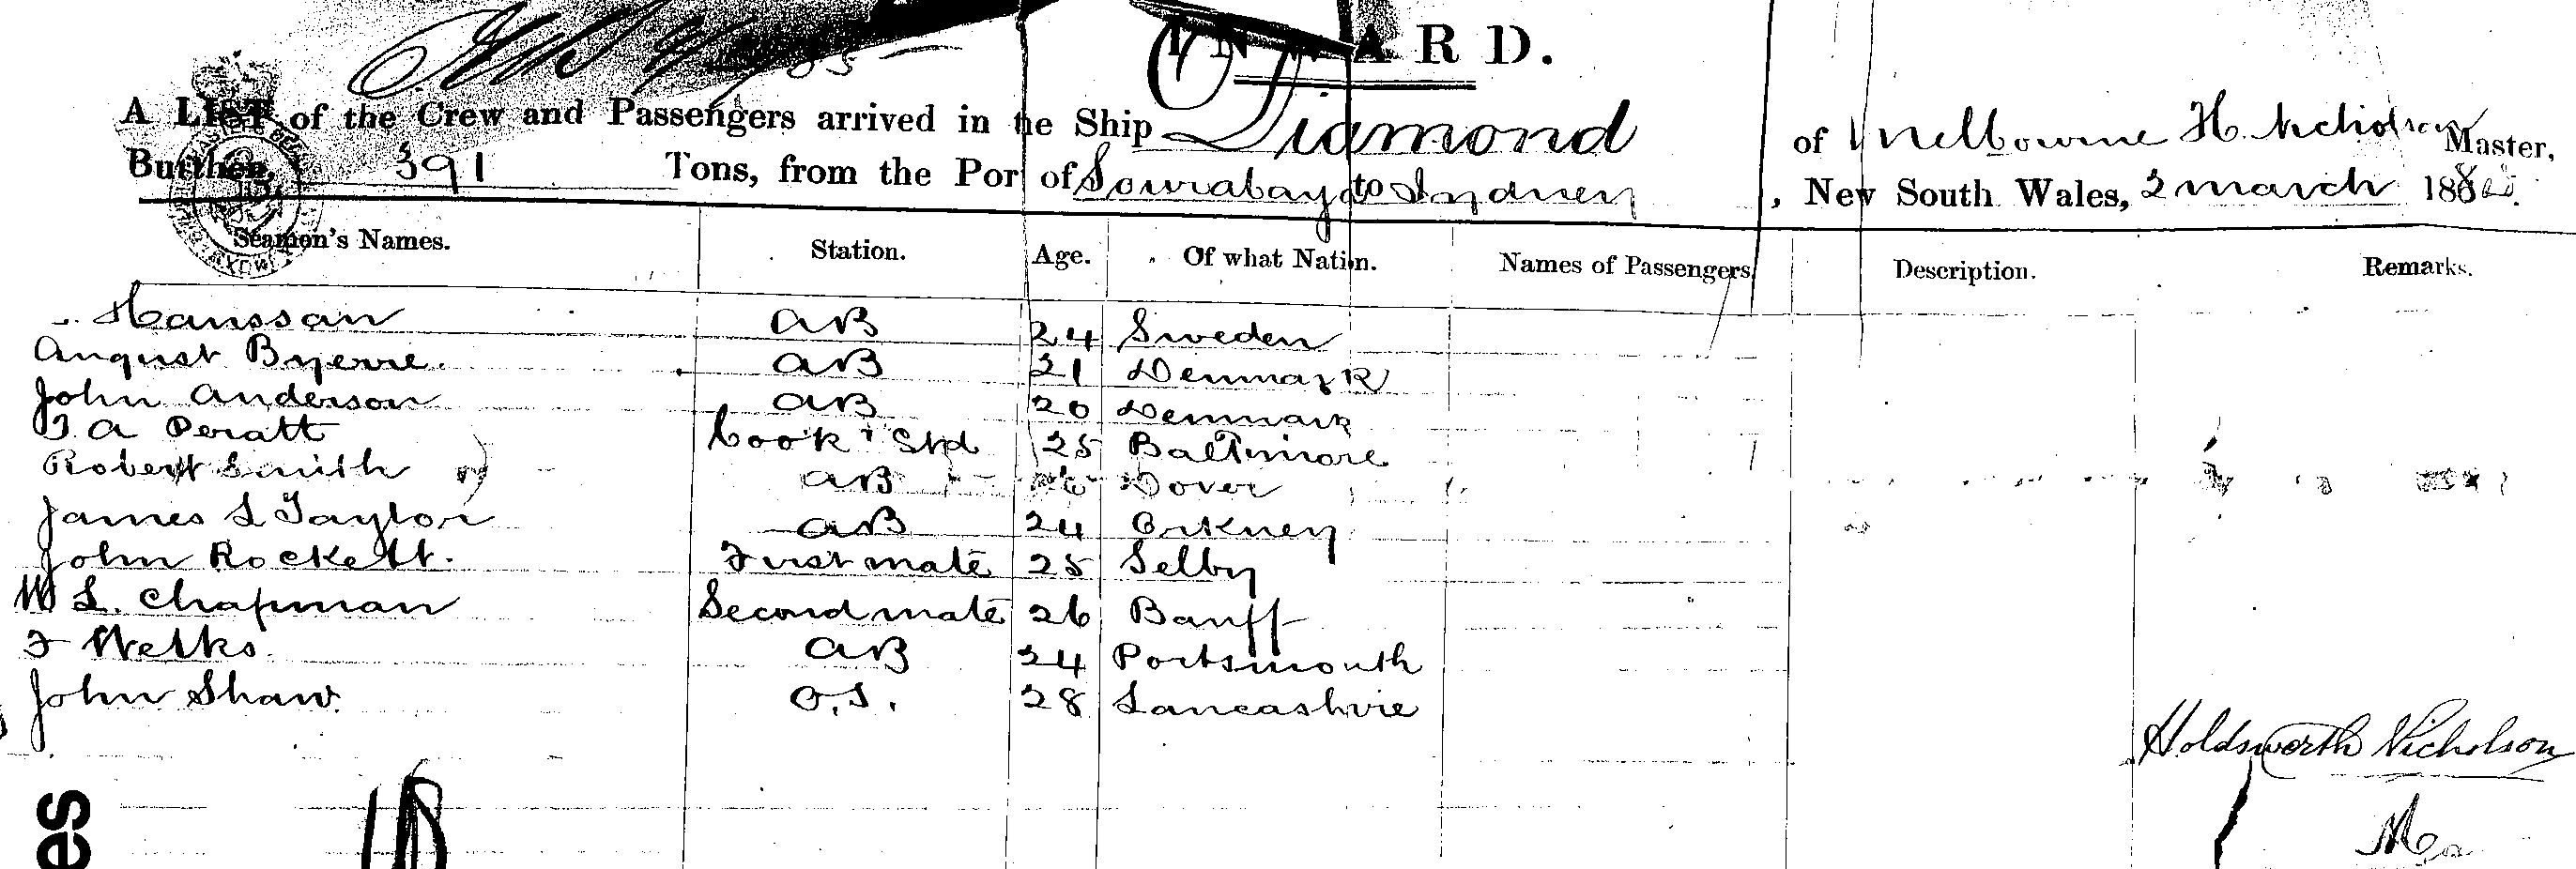 INWARD.
A LIST of the Crew and Passengers arrived in the Ship Diamond of Melbourne H. Nicholson Master,
Burthen, 391 Tons, from the Port of Sourabaya to Sydney, New South Wales, 2 march 188
Seamen's Names. Station. Age. Of what Nation. Names of Passengers. Description. Remarks.
Hanssan AB 24 Sweden
August Byerre. AB 21 Denmark
John Anderson AB 20 Denmark
A Peratt Cook & Std 25 Baltimore
Robert Smith AB Dover
James S Taylor AB 24 Orkney
John Rockett. First mate 25 Selby
W S. Chapman Second mate 26 Banff
F Welks. AB 24 Portsmouth
John Shaw. O.S. 28 Lancashire
Holdsworth Nicholson
es